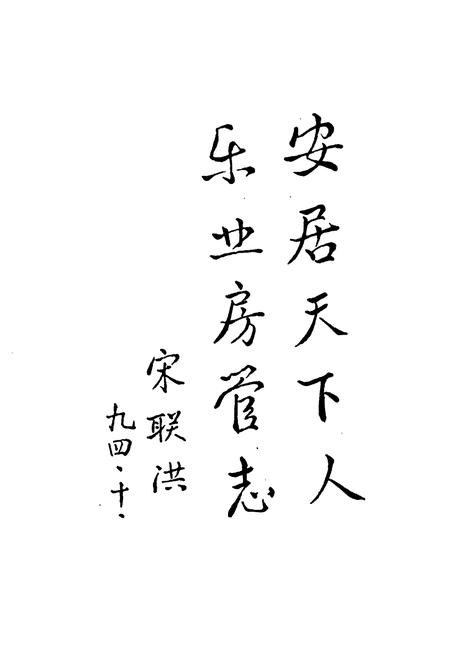 安居天下人
乐业房管志
宋联洪
九四、十、